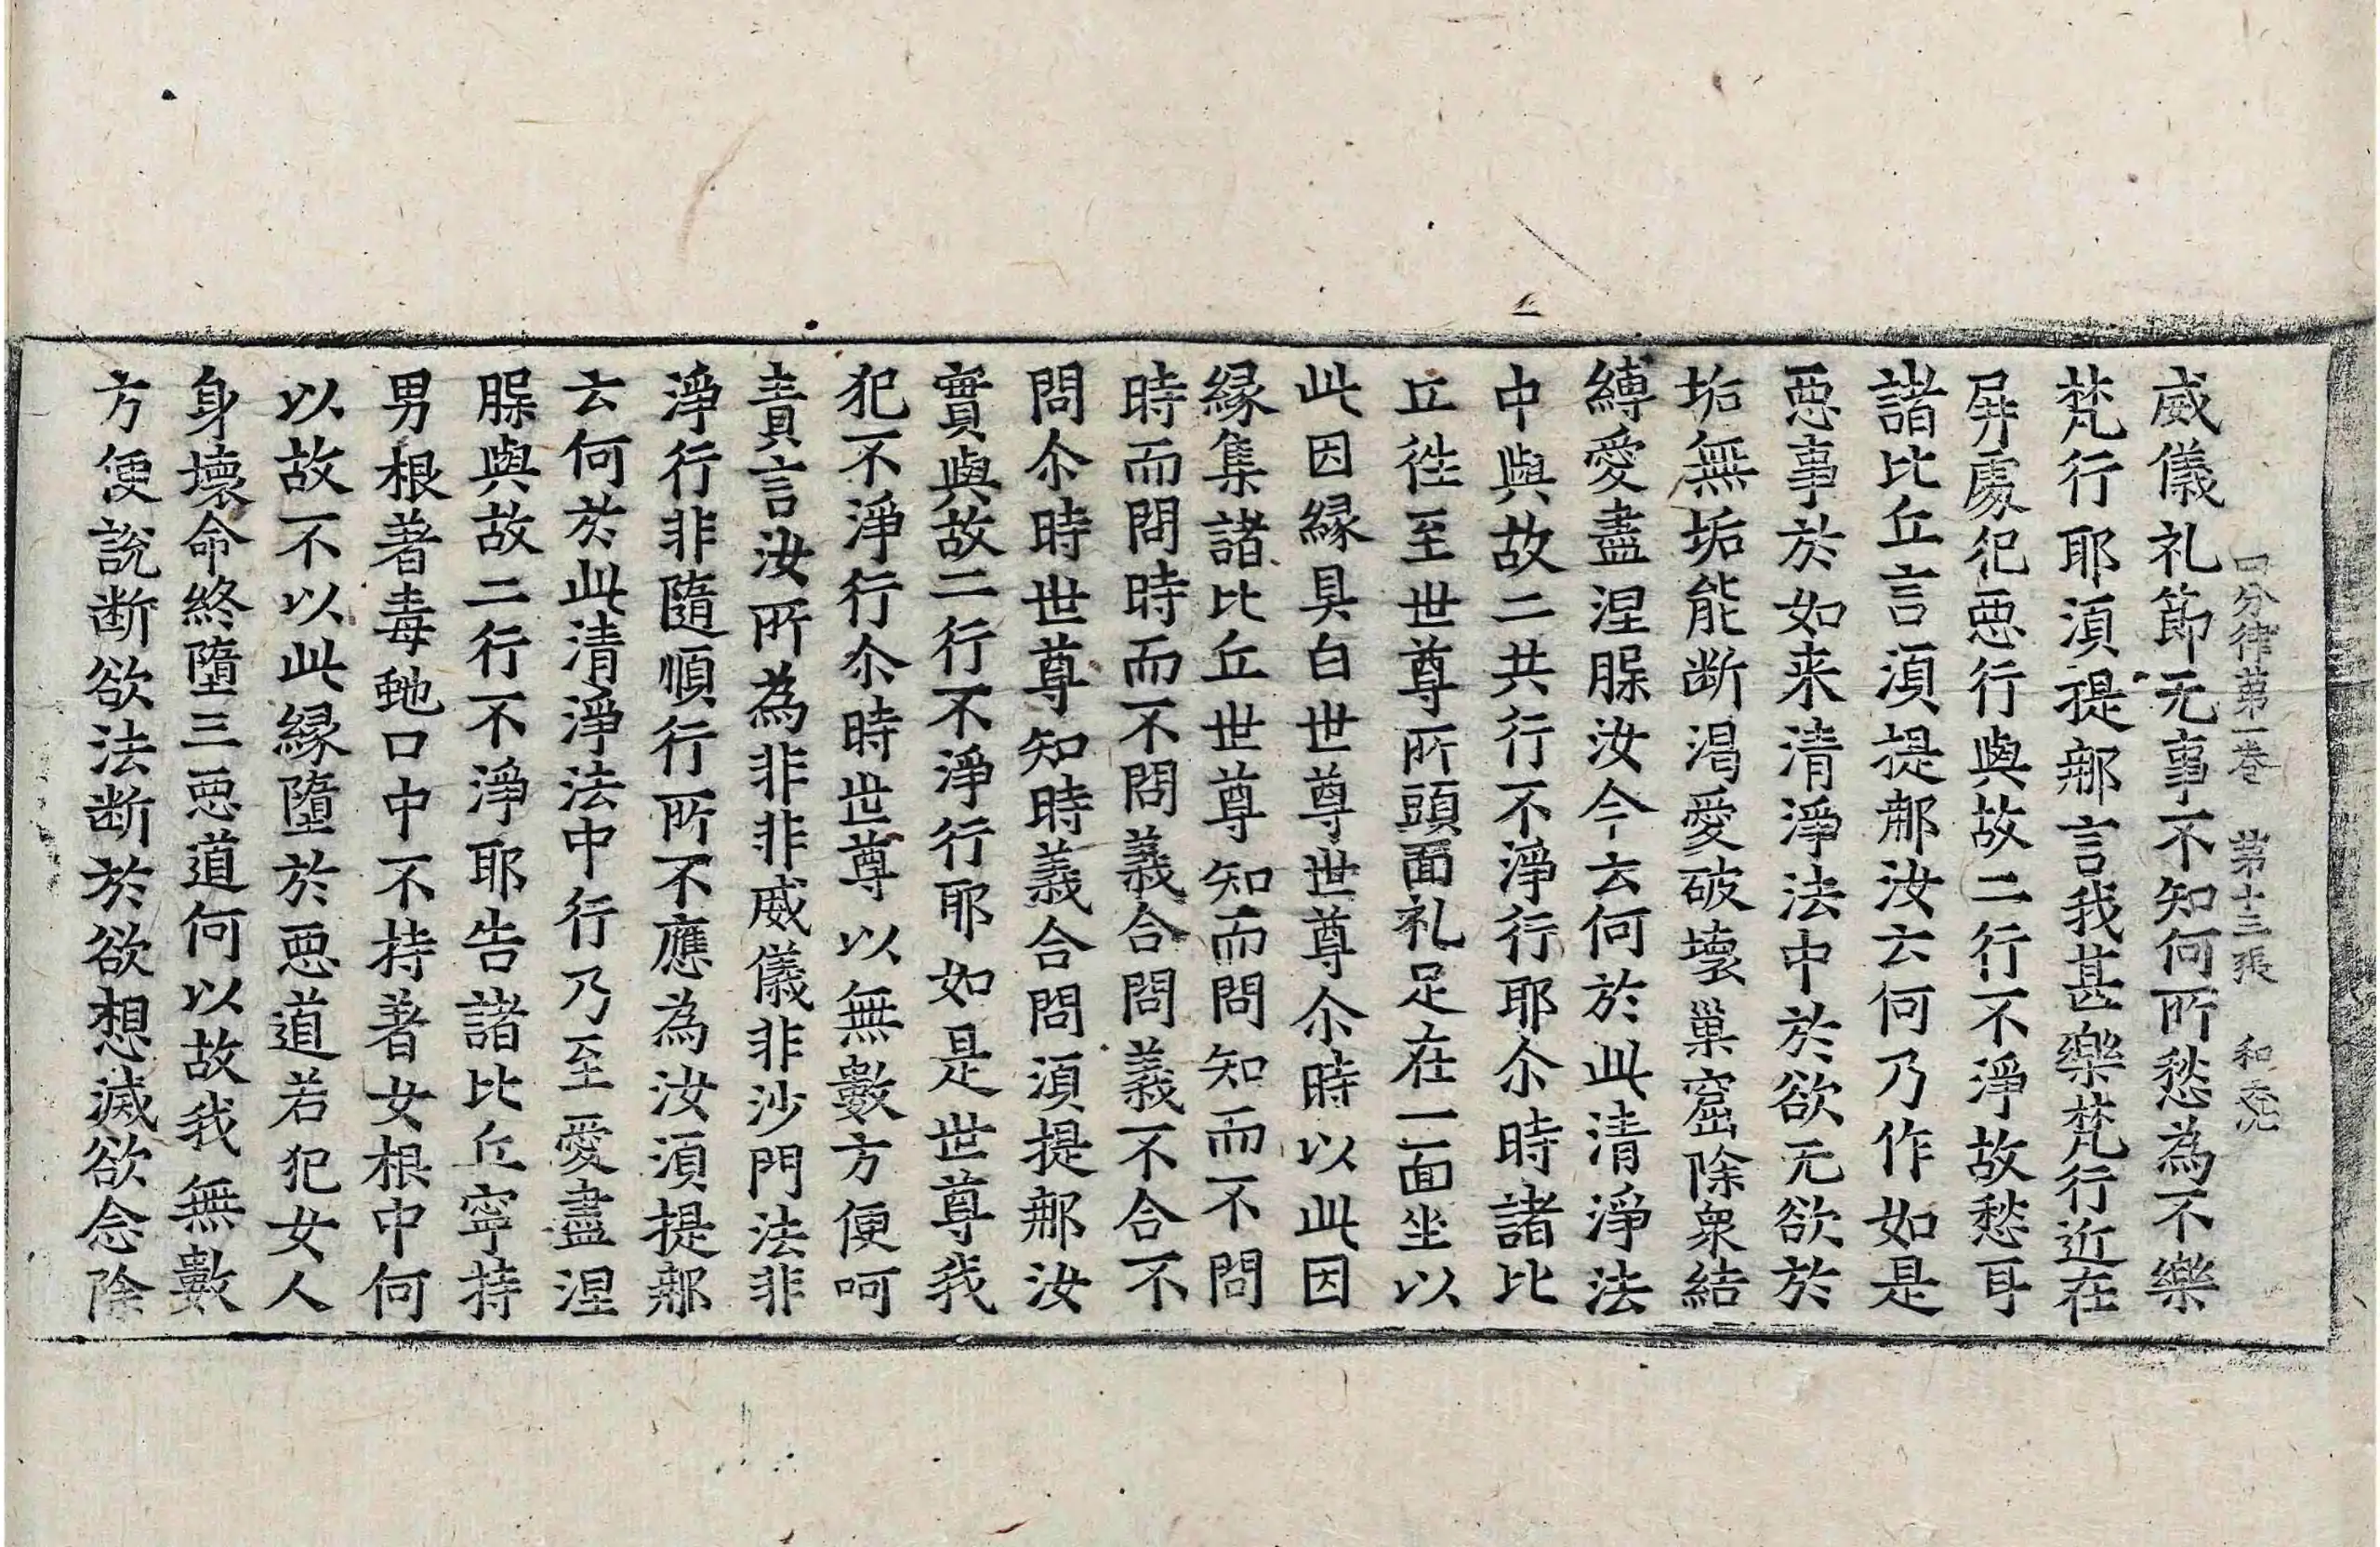 四分律第一卷 第十三張 和
威儀礼節无事不知何所愁為不樂
梵行耶湏提那言我甚樂梵行近在
屏處犯惡行與故二行不淨故愁耳
諸比丘言湏提那汝云何乃作如是
惡事於如来清淨法中於欲无欲於
垢無垢能断渴愛破壞巢窟除衆結
縛愛盡涅槃汝今云何於此清淨法
中與故二共行不淨行耶尒時諸比
丘徃至世尊所頭面礼足在一面坐以
此因縁具白世尊世尊尒時以此因
縁集諸比丘世尊知而問知而不問
時而問時而不問義合問義不合不
問尒時世尊知時義合問湏提那汝
實與故二行不淨行耶如是世尊我
犯不淨行尒時世尊以無數方便呵
責言汝所為非非威儀非沙門法非
淨行非隨順行所不應為汝湏提那
云何於此清淨法中行乃至愛盡涅
槃與故二行不淨耶告諸比丘寧持
男根著毒虵口中不持著女根中何
以故不以此縁墮於惡道若犯女人
身壞命終墮三惡道何以故我無數
方便說断欲法断於欲想滅欲念除